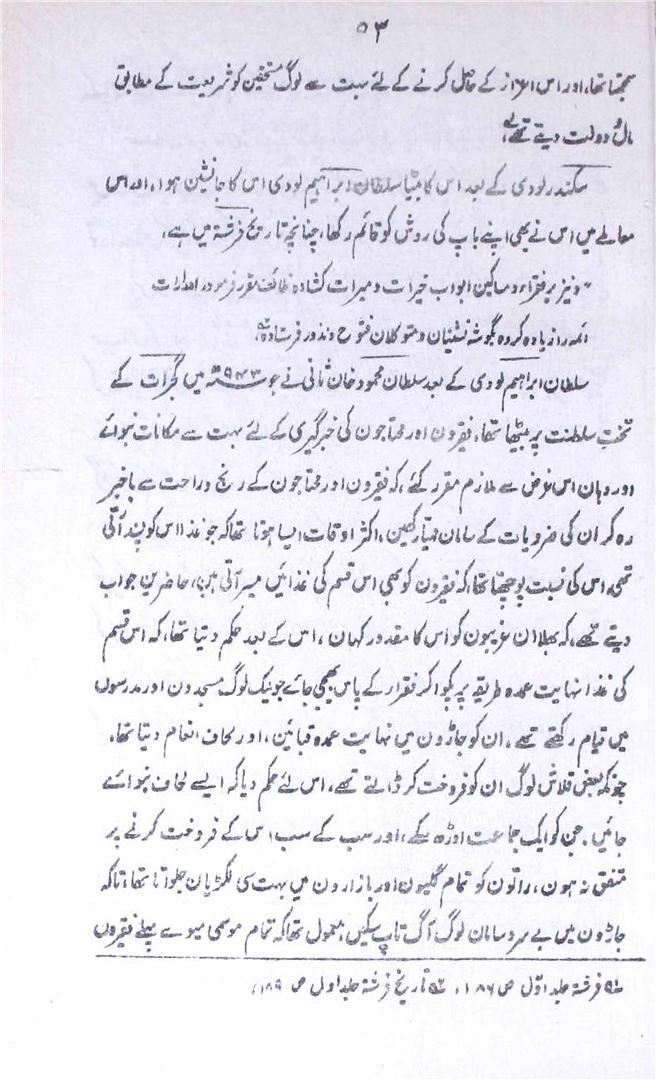 ۵۳
سمجھتا تھا، اور اس اعزاز کے حاصل کرنے کے لئے بہت سے لوگ مستحقین کو شریعت کے مطابق
مال و دولت دیتے تھے،
سکندر لودی کے بعد اس کا بیٹا سلطان ابراہیم لودی اس کا جانشین ہوا، اور اس
معاملے میں اس نے بھی اپنے باپ کی روش کو قائم رکھا، چنانچہ تاریخ فرشتہ میں ہے،
"و نیز بر فقراء و مساکین ابواب خیرات و مبرات کشادہ وظائف مقرر فرمود و ادرارات
ائمہ را زیادہ کردہ بگوشہ نشینان و متوکلان فتوح و نذور فرستادہ"
سلطان ابراہیم لودی کے بعد سلطان محمود خان ثانی نے جو ۹۴۳ھ میں گجرات کے
تخت سلطنت پر بیٹھا تھا، فقیرون اور محتاجون کی خبر گیری کے لئے بہت سے مکانات بنوائے
اور وہان اس غرض سے ملازم مقرر کئے، کہ فقیرون اور محتاجون کے رنج و راحت سے باخبر
رہ کر ان کی ضروریات کے سامان مہیا رکھین، اکثر اوقات ایسا ہوتا تھا کہ جو غذا اس کو پسند آتی
تھی اس کی نسبت پوچھتا تھا، کہ فقیرون کو بھی اس قسم کی غذائیں میسر آتی ہین، حاضرین جواب
دیتے تھے، کہ بھلا ان غریبون کو اس کا مقدور کہان، اس کے بعد حکم دیتا تھا، کہ اس قسم
کی غذا نہایت عمدہ طریقے پر پکوا کر فقراء کے پاس بھیجی جائے جو نیک لوگ مسجدون اور مدرسون
میں قیام رکھتے تھے، ان کو جاڑون میں نہایت عمدہ قبائین، اور لحاف انعام دیتا تھا،
چونکہ بعض قلاش لوگ ان کو فروخت کر ڈالتے تھے، اس لئے حکم دیا کہ ایسے لحاف بنوائے
جائیں، جن کو ایک جماعت اوڑھ سکے، اور سب کے سب اس کے فروخت کرنے پر
متفق نہ ہون، راتون کو تمام گلیون اور بازارون میں بہت سی لکڑیان جلواتا تھا، تاکہ
جاڑون میں بے سر و سامان لوگ آگ تاپ سکیں، معمول تھا کہ تمام موسمی میوے پہلے فقیرون
فرشتہ جلد اول ص ۱۸۶، تاریخ فرشتہ جلد اول ص ۱۸۹،